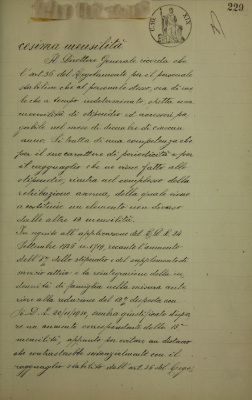 229
cesima mensilità
Il Direttore Generale ricorda che
l'art. 36 del Regolamento per il personale
stabilisce che al personale stesso, sia di ruo-
lo che a tempo indeterminato spetta una
mensilità di stipendio ed accessori pa-
gabile nel mese di dicembre di ciascun
anno. Si tratta di una competenza che
per il suo carattere di periodicità e per
il ragguaglio che ne viene fatto allo
stipendio, rientra nel complesso della
retribuzione annua, della quale viene
a costituire un elemento non diverso
dalle altre 12 mensilità.
In seguito all'applicazione del R.D.L. 24
Settembre 1936 n. 1719, recante l'aumento
dell'8% dello stipendio e del supplemento di
servizio attivo e la reintegrazione della in-
dennità di famiglia nella misura ante-
riore alla riduzione del 12% disposta con
R.D.L. 20/11/930, sembra giustificato dispor-
re un aumento corrispondente della 13ª
mensilità, appunto per evitare un distacco
che contrasterebbe sostanzialmente con il
ragguaglio stabilito dall'art. 36 del Rego-